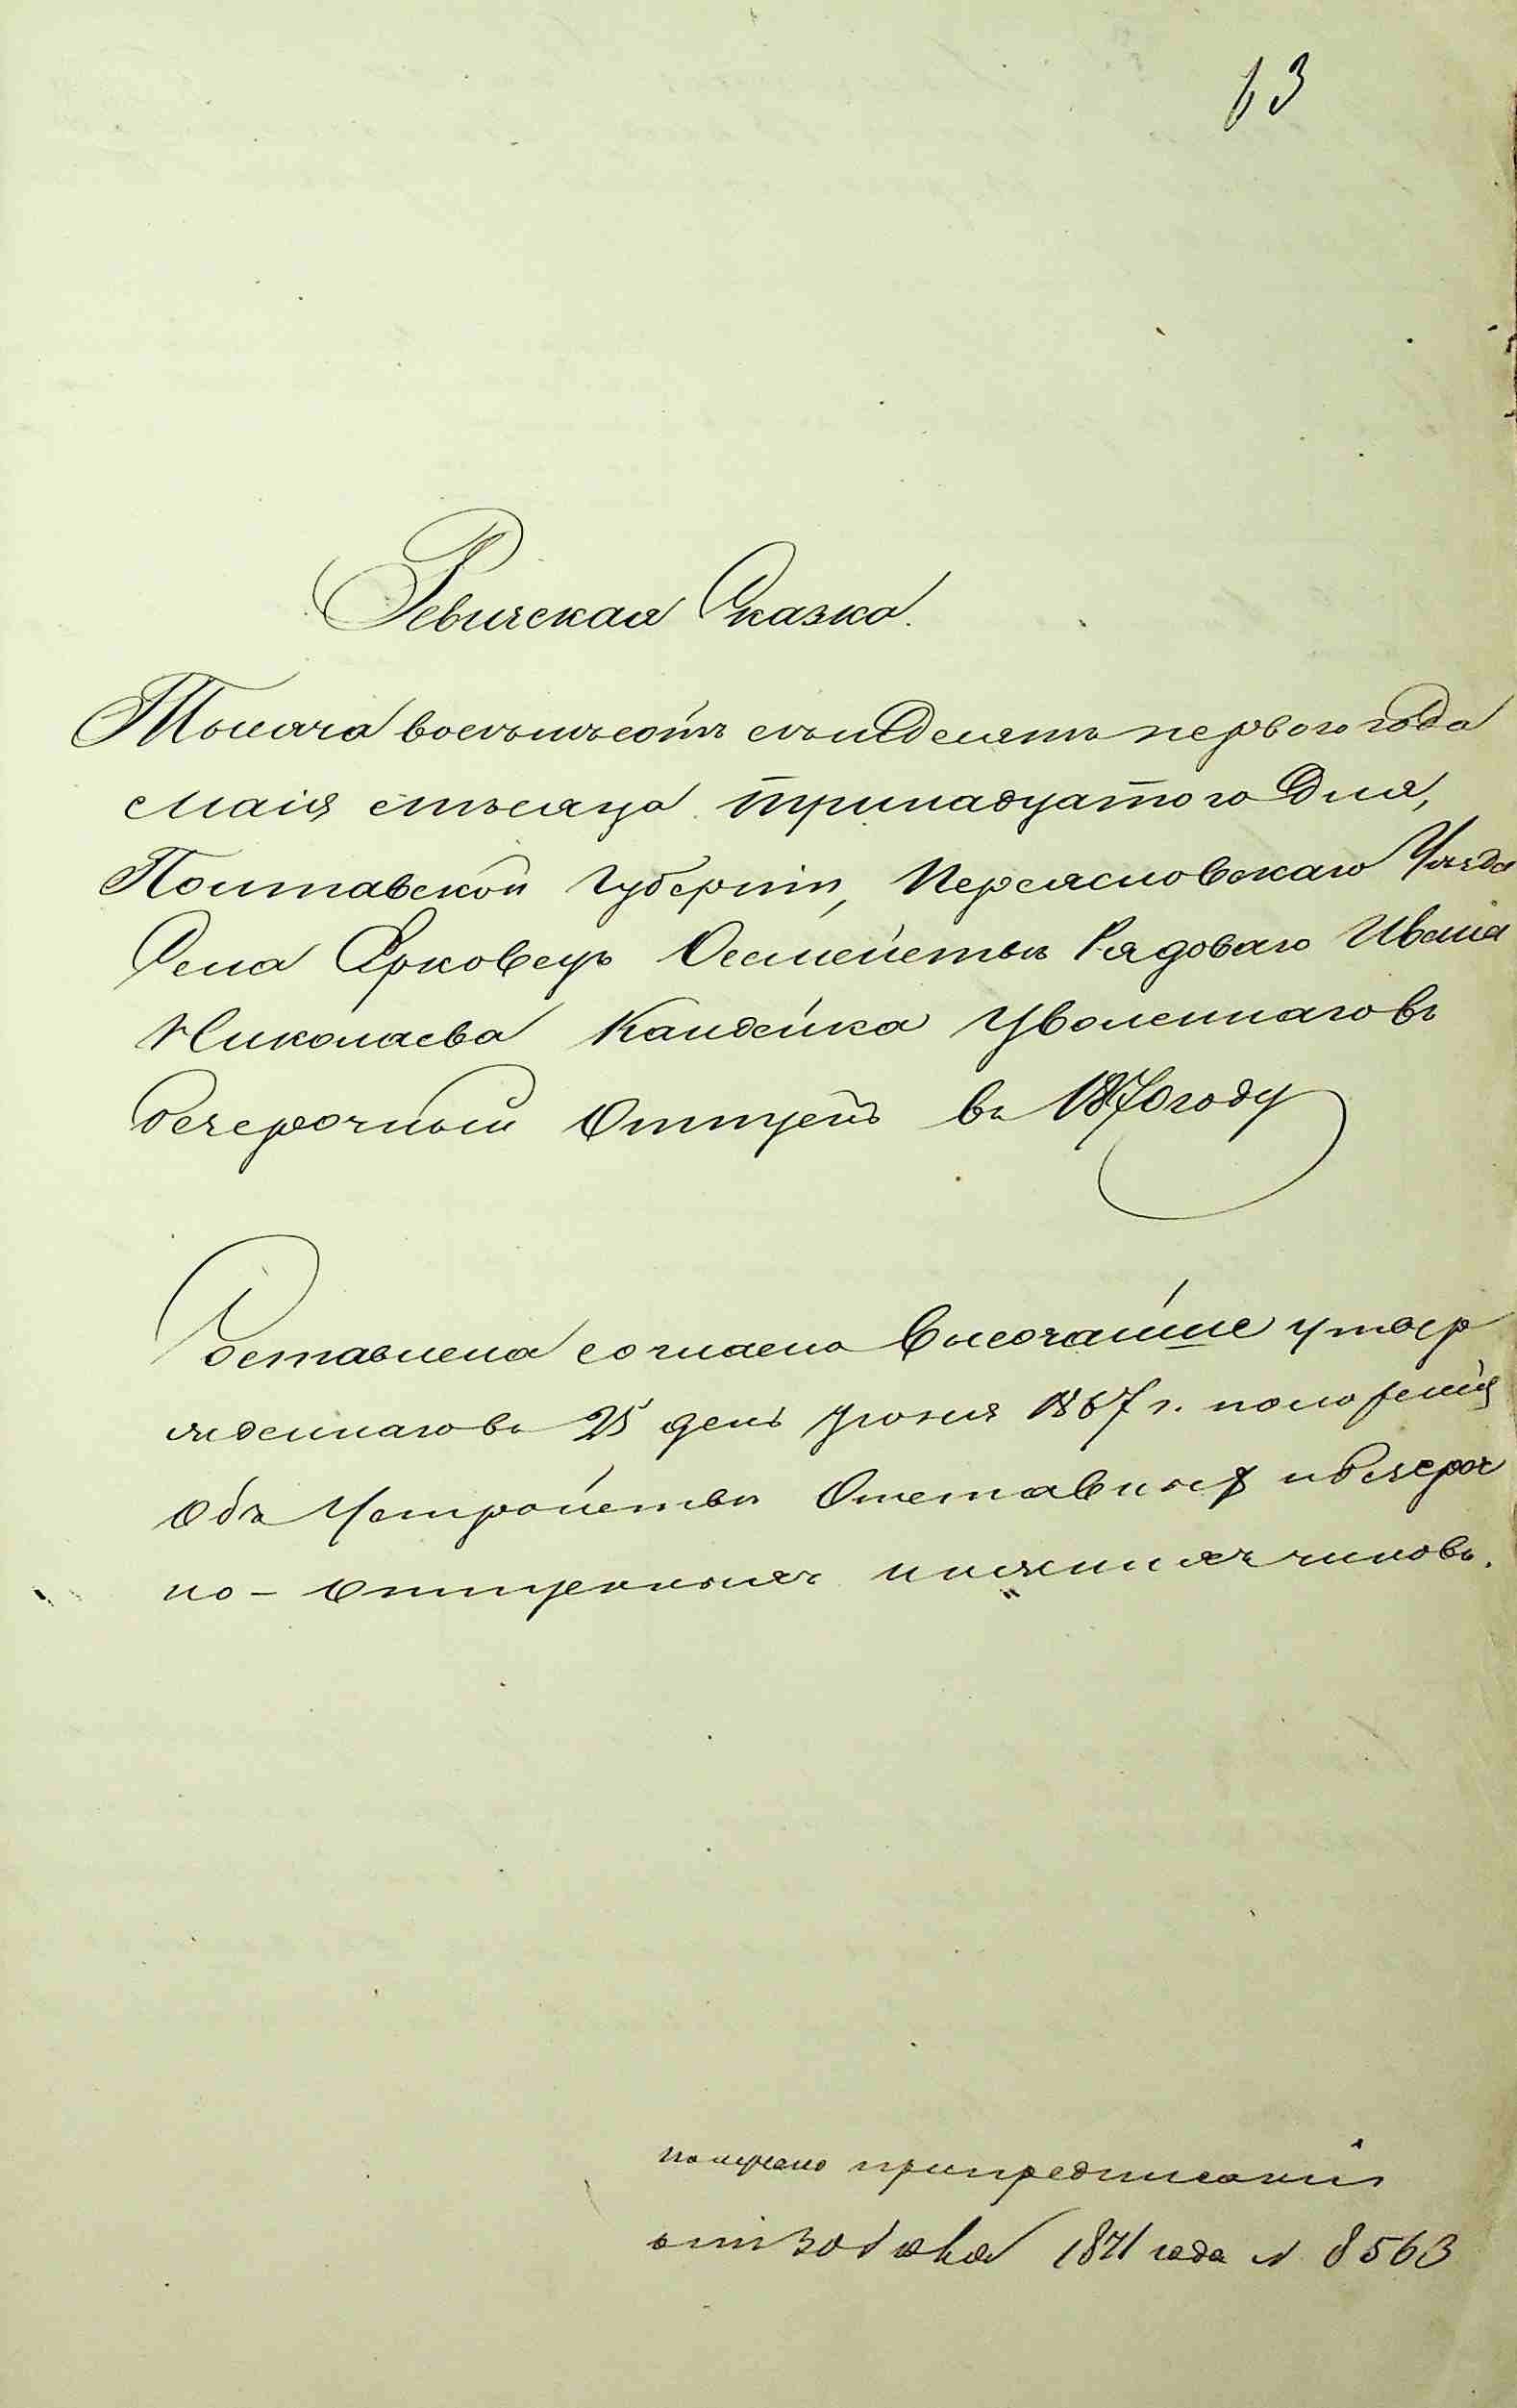 63
Ревижская Сказка.
Тысяча восемьсотъ семьдесятъ первого года
Маія мѣсяца тринадцатого Дня,
Полтавской Губерніи, Переясловскаго Уѣзда
Села Ярковецъ О семействѣ Рядоваго Ивана
Николаева Кандейка Уволеннаго въ
безсрочный Отпускъ въ 1870 году
Составлена согласно Высочайше утвер
жденнаго въ 25 день Іюня 1867 г. положенія
Объ Устройствѣ Отставныхъ и безсроч
но-отпускныхъ нижнихъ чиновъ.
получено при предписаніи
1871 года № 8563